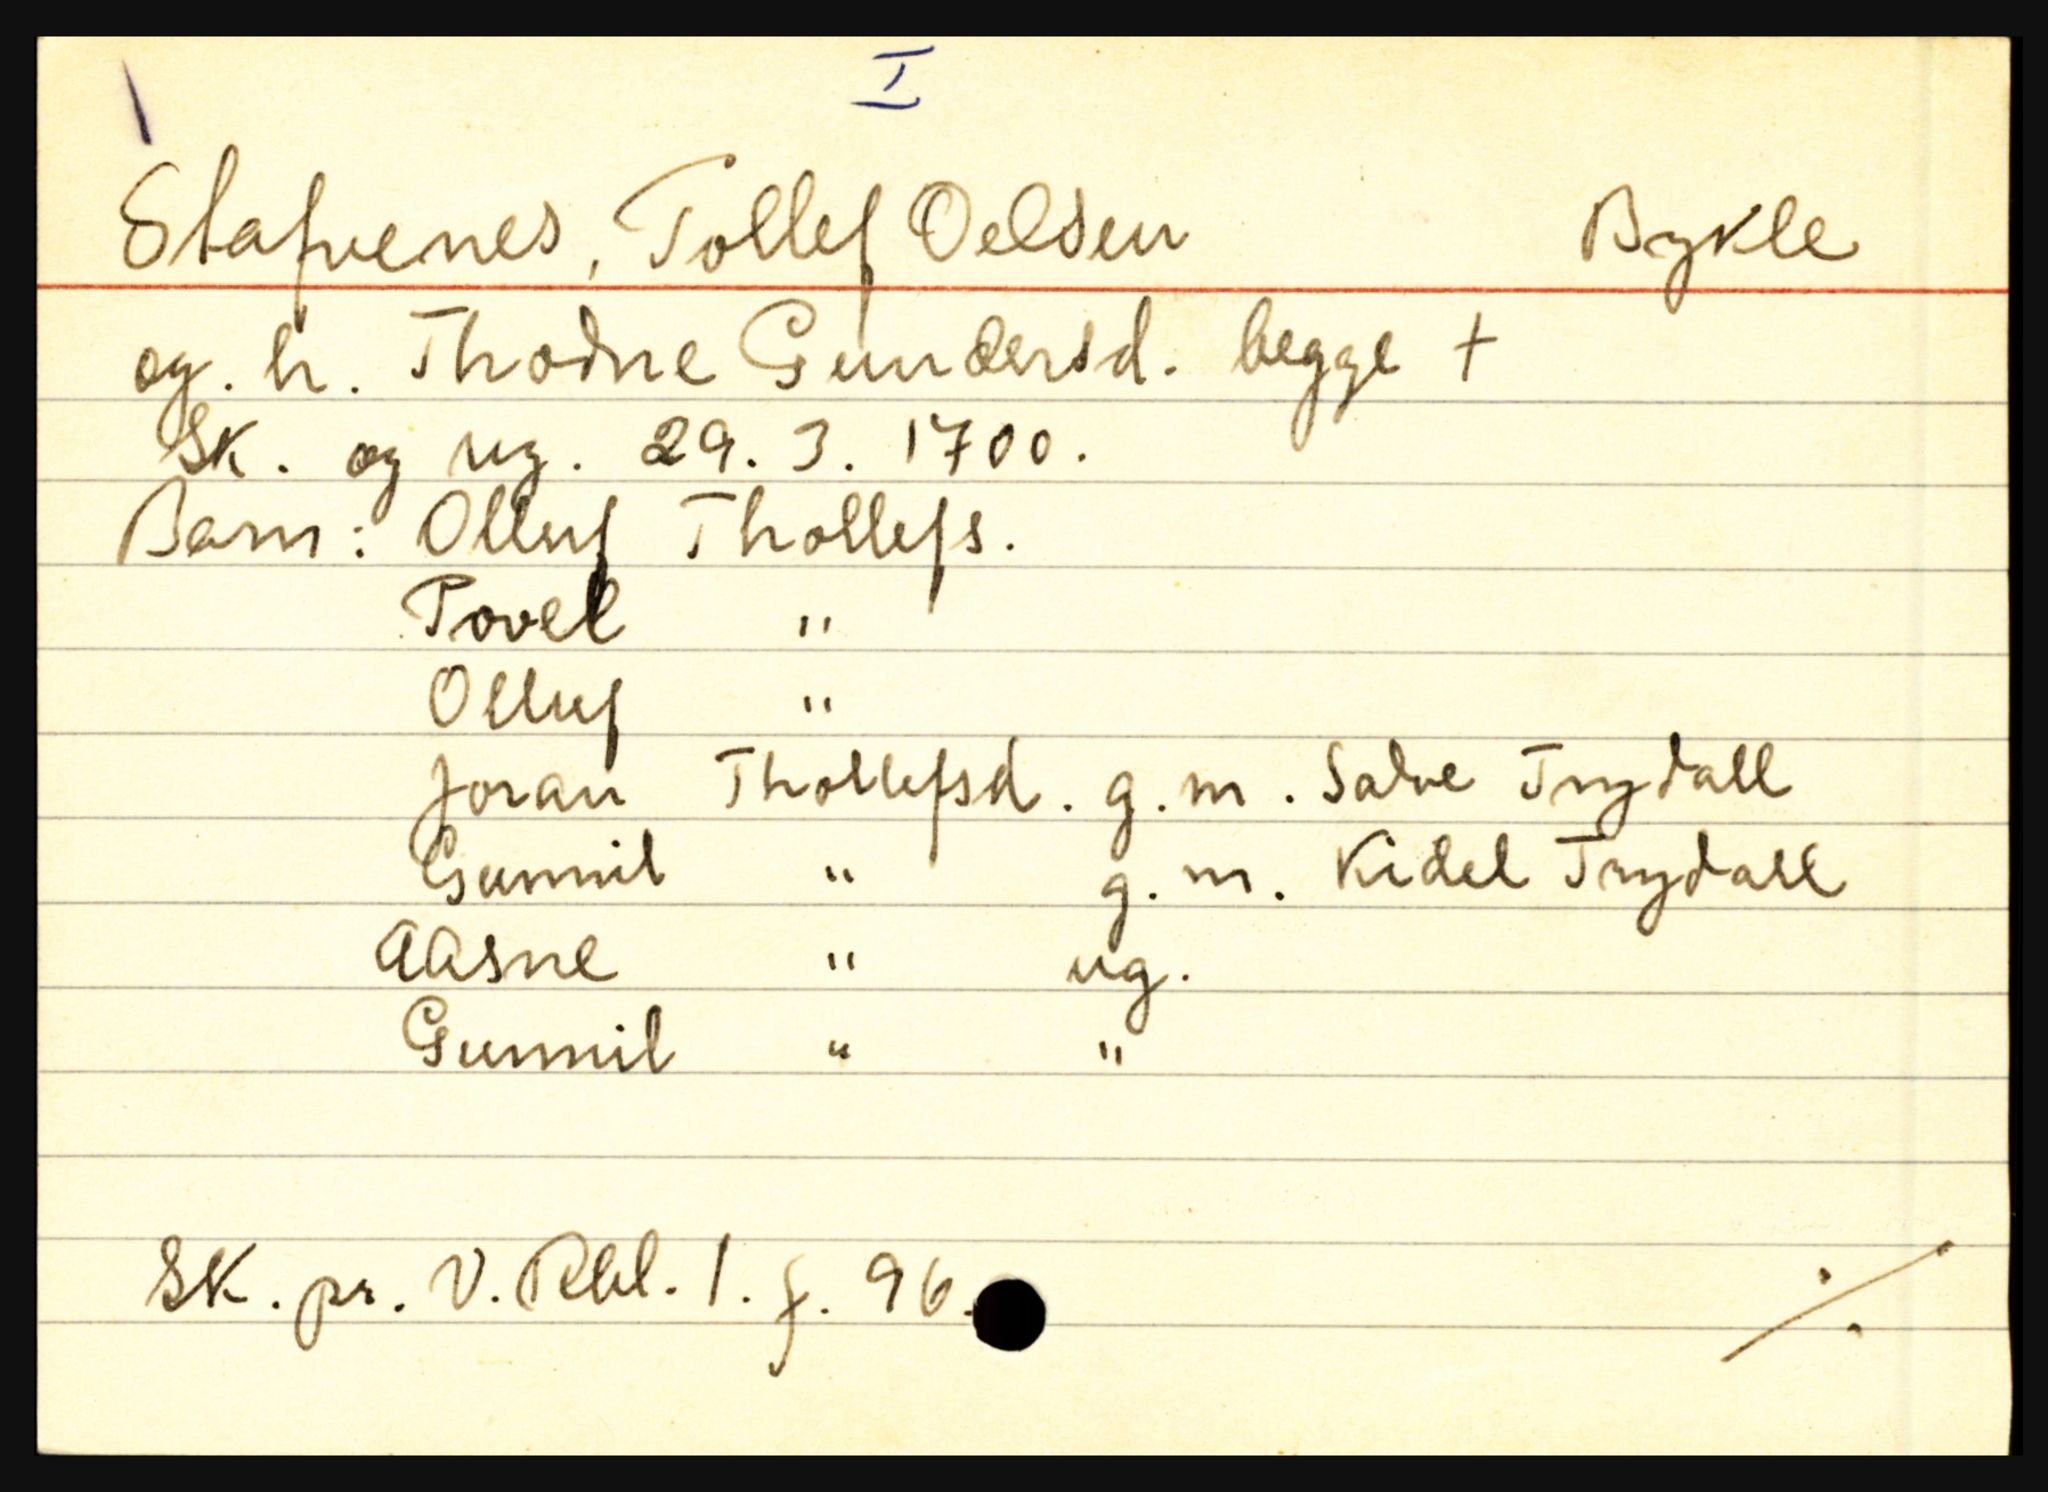 I
Stafvenes, Tollef Oelsen Bykle
og. h. Thodne Gundersd. begge +
Sk. og reg. 29. 3. 1700.
Barn: Olluf Thollefs.
Povel "
Olluf "
Joran Thollefsd. g. m. Salve Trydall
Gunnil " g. m. Kidel Trydall
Aasne " ug.
Gunnil " "
Sk. pr. V. Rbl. 1. f. 96.